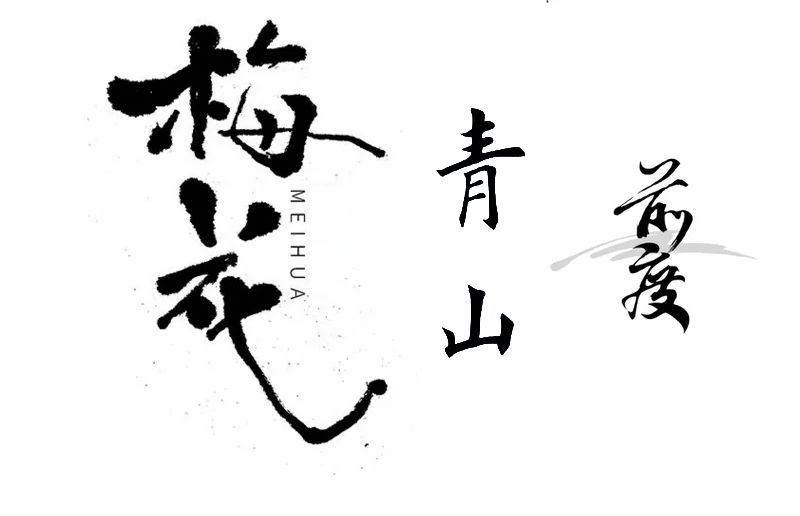 梅花
MEIHUA
青山
前度